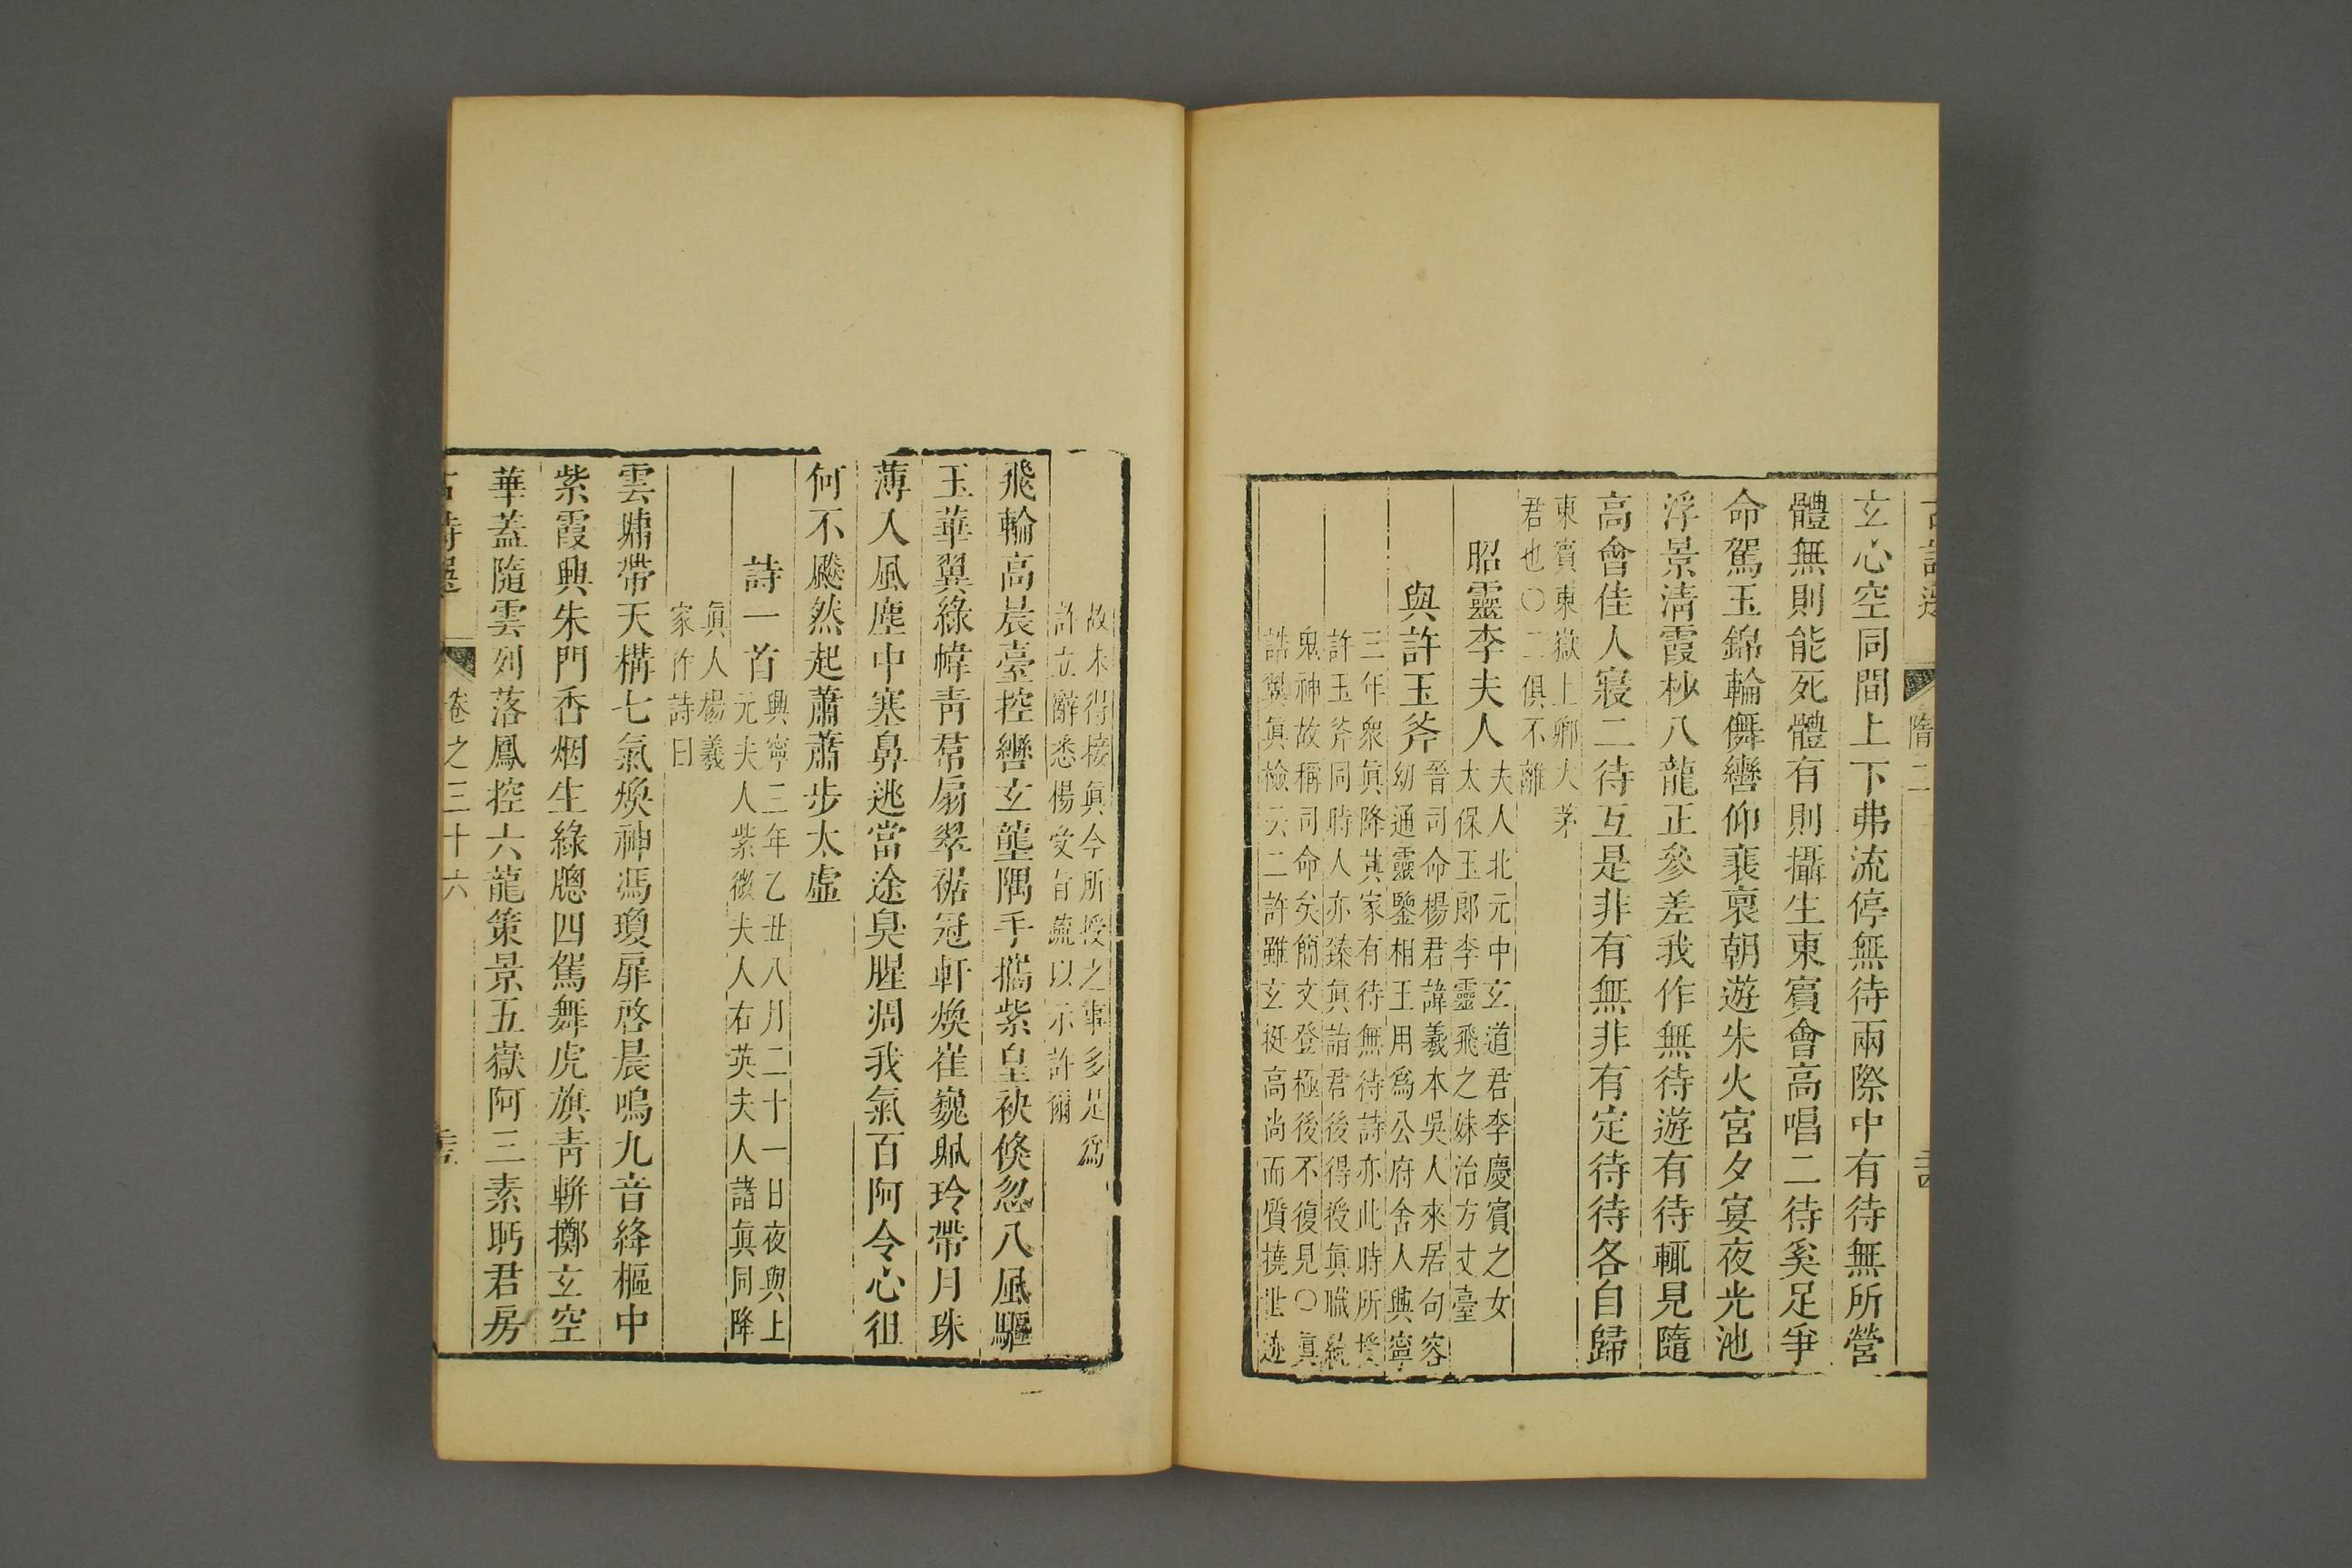 隋二
玄心空同間上下弗流停無待兩際中有待無所營
體無則能死體有則攝生東賓會高唱二待奚足爭
命駕玉錦輪儛轡仰裴裒朝遊朱火宮夕宴夜光池
浮景清霞杪八龍正參差我作無待遊有待輒見隨
高會佳人寢二待互是非有無非有定待待各自歸
東賓東嶽上卿大茅
君也〇二俱不離
昭靈李夫人
夫人北元中玄道君李慶賓之女
太保玉郎李靈飛之妹治方丈臺
與許玉斧
晉司命楊君諱羲本吳人來居句容
幼通靈鑒相王用為公府舍人興寧
三年衆眞降其家有待無待詩亦此時所授
許玉斧同時人亦臻眞詣君後得授眞職統
鬼神故稱司命矣簡文登極後不復見〇眞
誥翼眞檢云二許雖玄挺高尚而質撓世迹
故未得接眞今所授之事多是爲
許立辭悉楊受旨疏以示許爾
飛輪高晨臺控轡玄壟隅手攜紫皇袂倏忽八風驅
玉華翼綠幃青帬扇翠裾冠軒煥崔巍珮玲帶月珠
薄入風塵中塞鼻逃當途臭腥凋我氣百阿令心徂
何不飈然起蕭蕭步太虛
詩一首
興寧三年乙丑八月二十一日夜與上
元夫人紫微夫人右英夫人諸眞同降
眞人楊羲
家作詩曰
雲墉帶天構七氣煥神馮瓊扉啓晨鳴九音絳樞中
紫霞興朱門香烟生綠牕四駕舞虎旗青軿擲玄空
華蓋隨雲列落鳳控六龍策景五嶽阿三素眄君房
卷之三十六